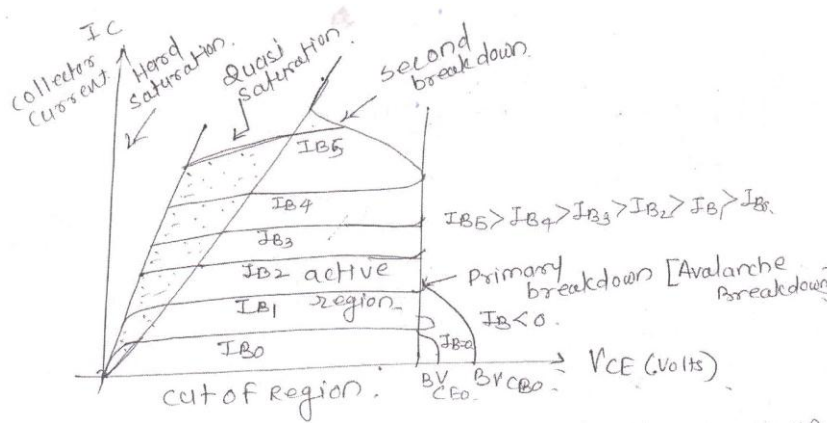 IC
Collector
Current.
Hard
Saturation.
Quasi
saturation.
second
breakdown.
IB5
IB4
IB3
IB2 active
region.
IB1
IB0
IB5 > IB4 > IB3 > IB2 > IB1 > IB0.
Primary
breakdown [Avalanche
Breakdown
IB<0.
IB=0
cut of Region.
BV
CEO
BVCBO.
VCE (volts)